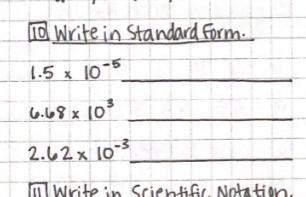 10 Write in Standard Form.
1.5 x 10⁻⁵
6.68 x 10³
2.62 x 10⁻³
11 Write in Scientific Notation.